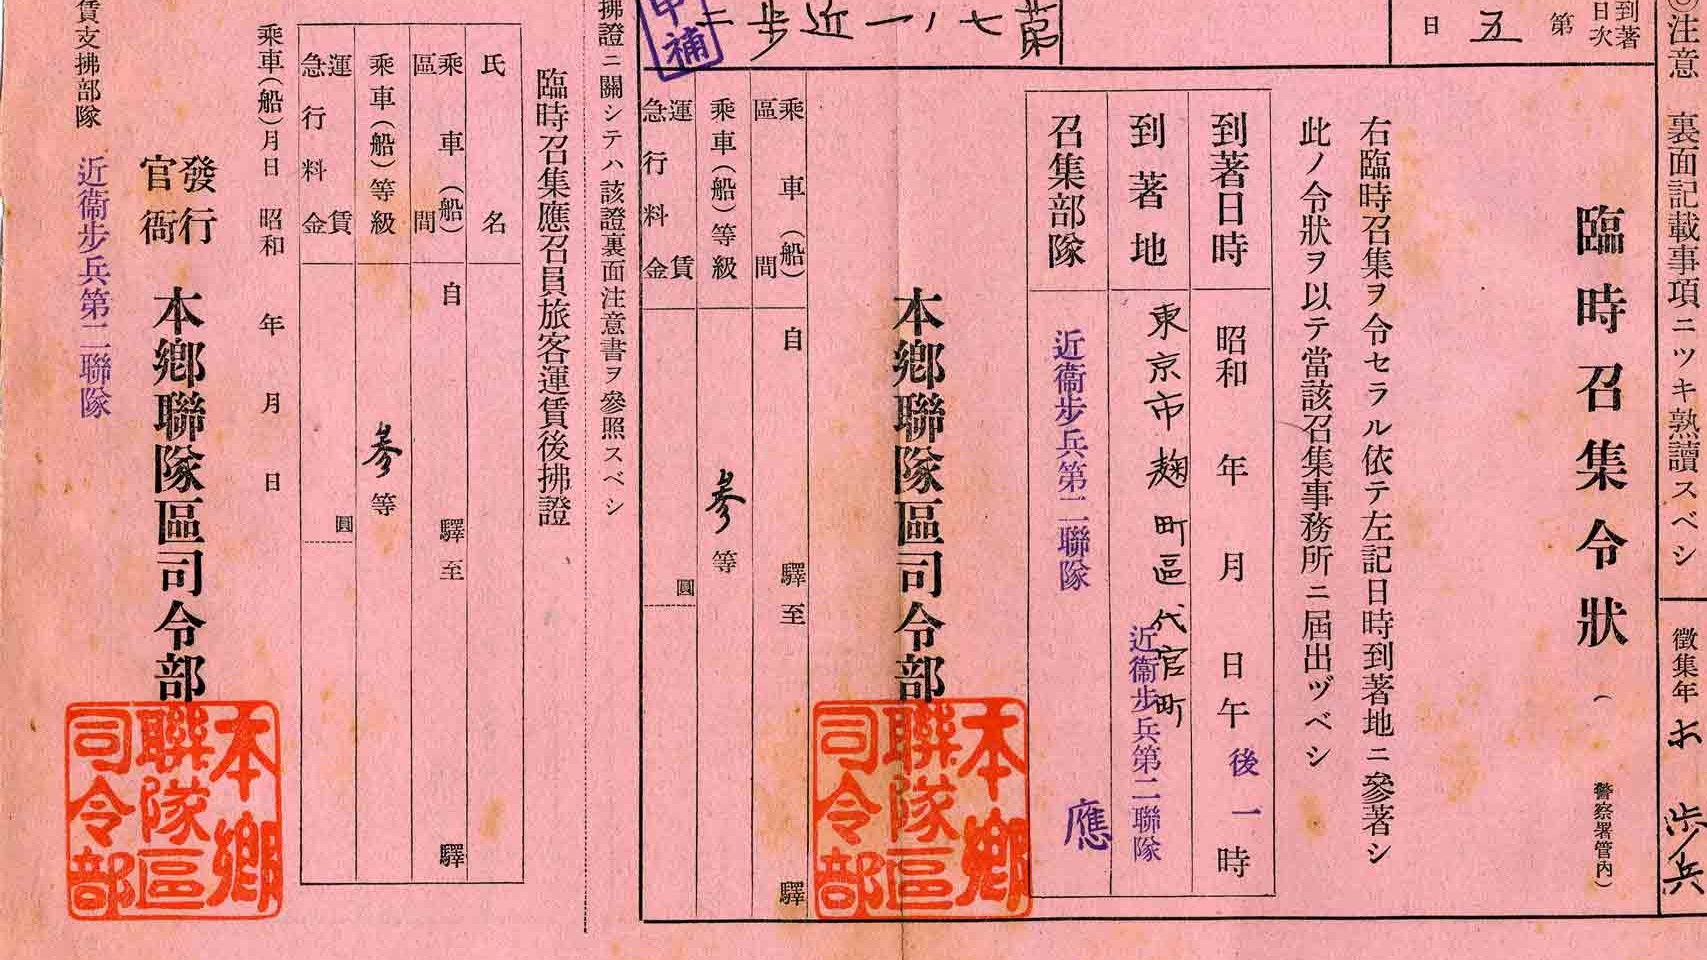 ◎注意 裏面記載事項ニツキ熟讀スベシ
徵集年 歩兵
到著日次 第五日
臨時召集令狀 (警察署管內)
右臨時召集ヲ令セラル依テ左記日時到著地ニ參著シ
此ノ令狀ヲ以テ當該召集事務所ニ屆出ヅベシ
到著日時 昭和 年 月 日午後一時
到著地 東京市麹町區代官町
近衞步兵第二聯隊
召集部隊 近衞步兵第二聯隊 應
第七ノ一近步二
甲補
本鄕聯隊區司令部
本鄕聯隊區司令部
乘車(船)區間 自 驛至 驛
乘車(船)等級 參等
運賃
急行料金 圓
拂證ニ關シテハ該證裏面注意書ヲ參照スベシ
臨時召集應召員旅客運賃後拂證
氏名
乘車(船)區間 自 驛至 驛
乘車(船)等級 參等
運賃
急行料金 圓
乘車(船)月日 昭和 年 月 日
發行官衙 本鄕聯隊區司令部
本鄕聯隊區司令部
賃支拂部隊 近衞步兵第二聯隊